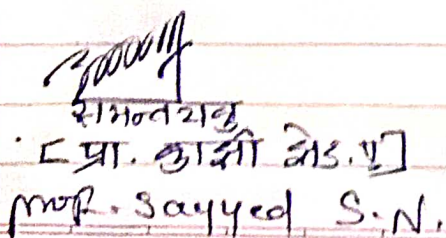 समन्वयक
[प्रा. काझी झेड.ए]
prof. Sayyed S.N.